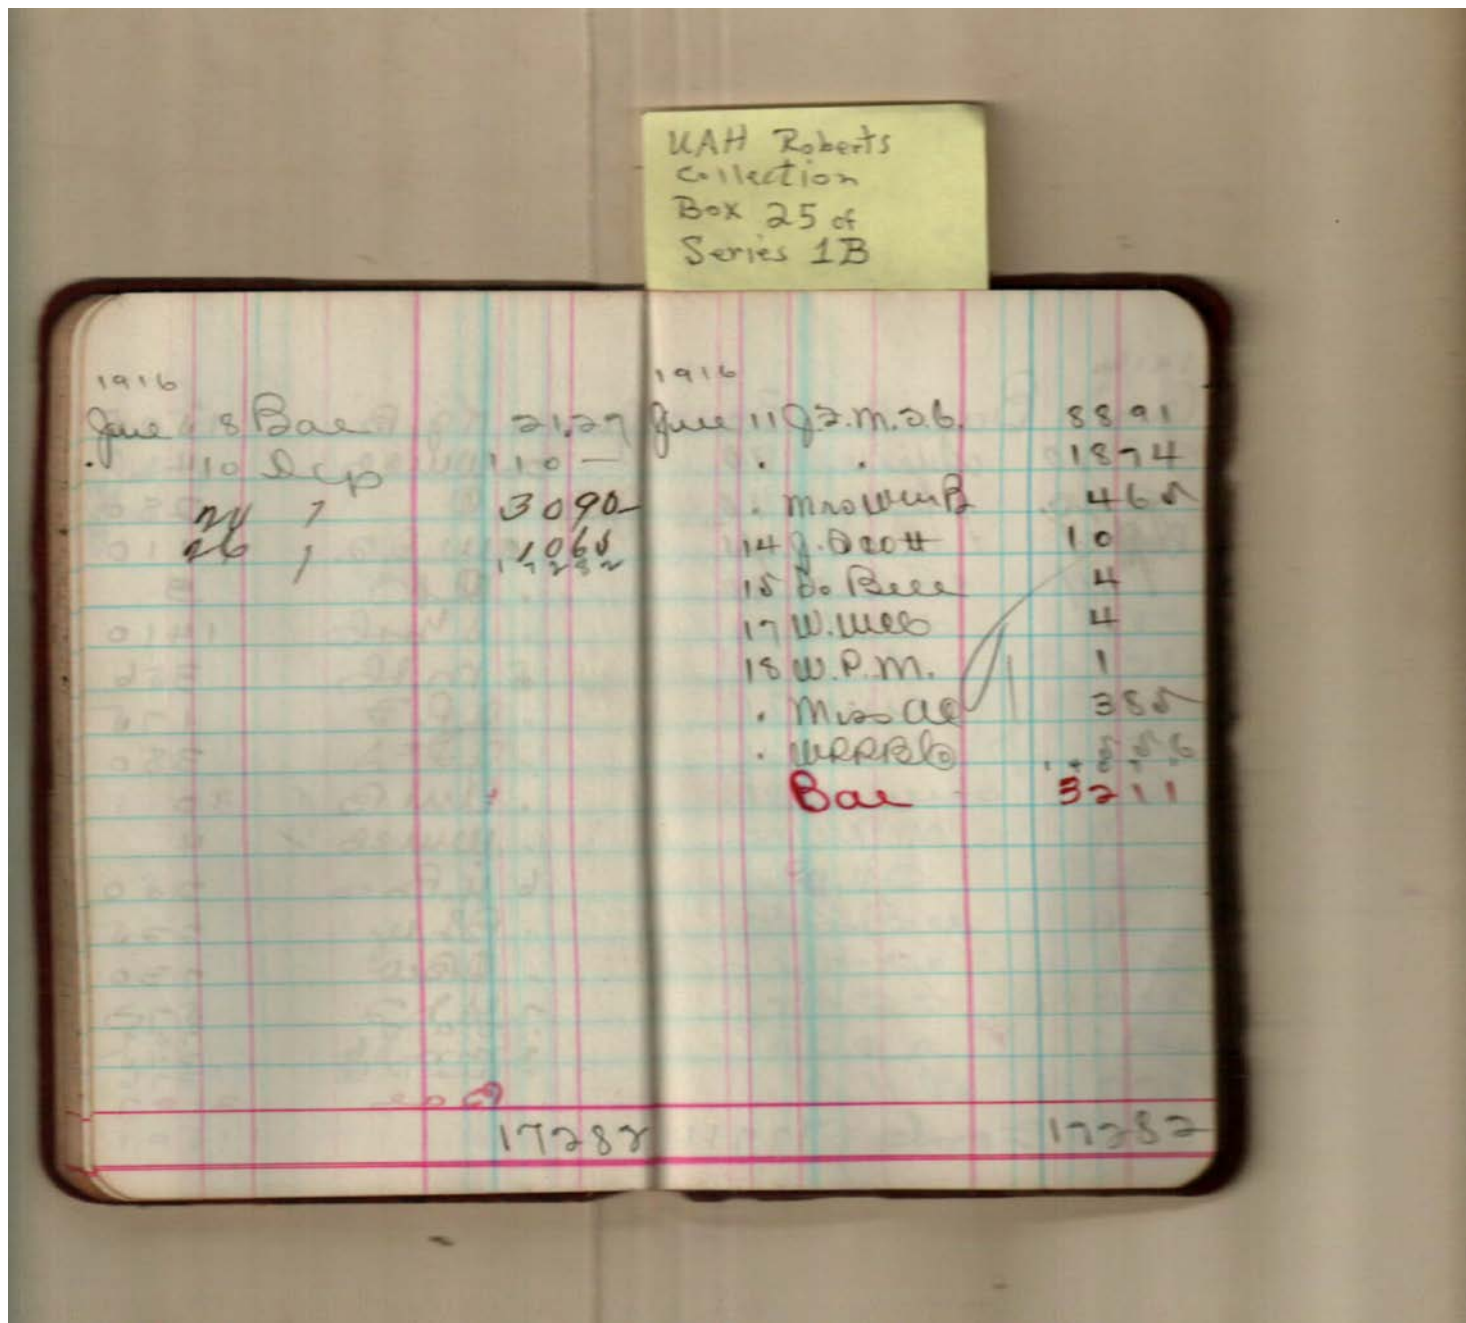 UAH Roberts
Collection
Box 25 of
Series 1B
1916
June 8 Bal 21.27
10 Dep 110 —
24 " 3090
26 " 1065
17282
17282
1916
June 11 J.Z.M. 8891
. . 1874
. Mrs Wm B 465
14 J. Scott 10
15 Do Bell 4
17 W. Web 4
18 W.P.M. 1
. Miss Al 385
. 556
Bal 3211
17282